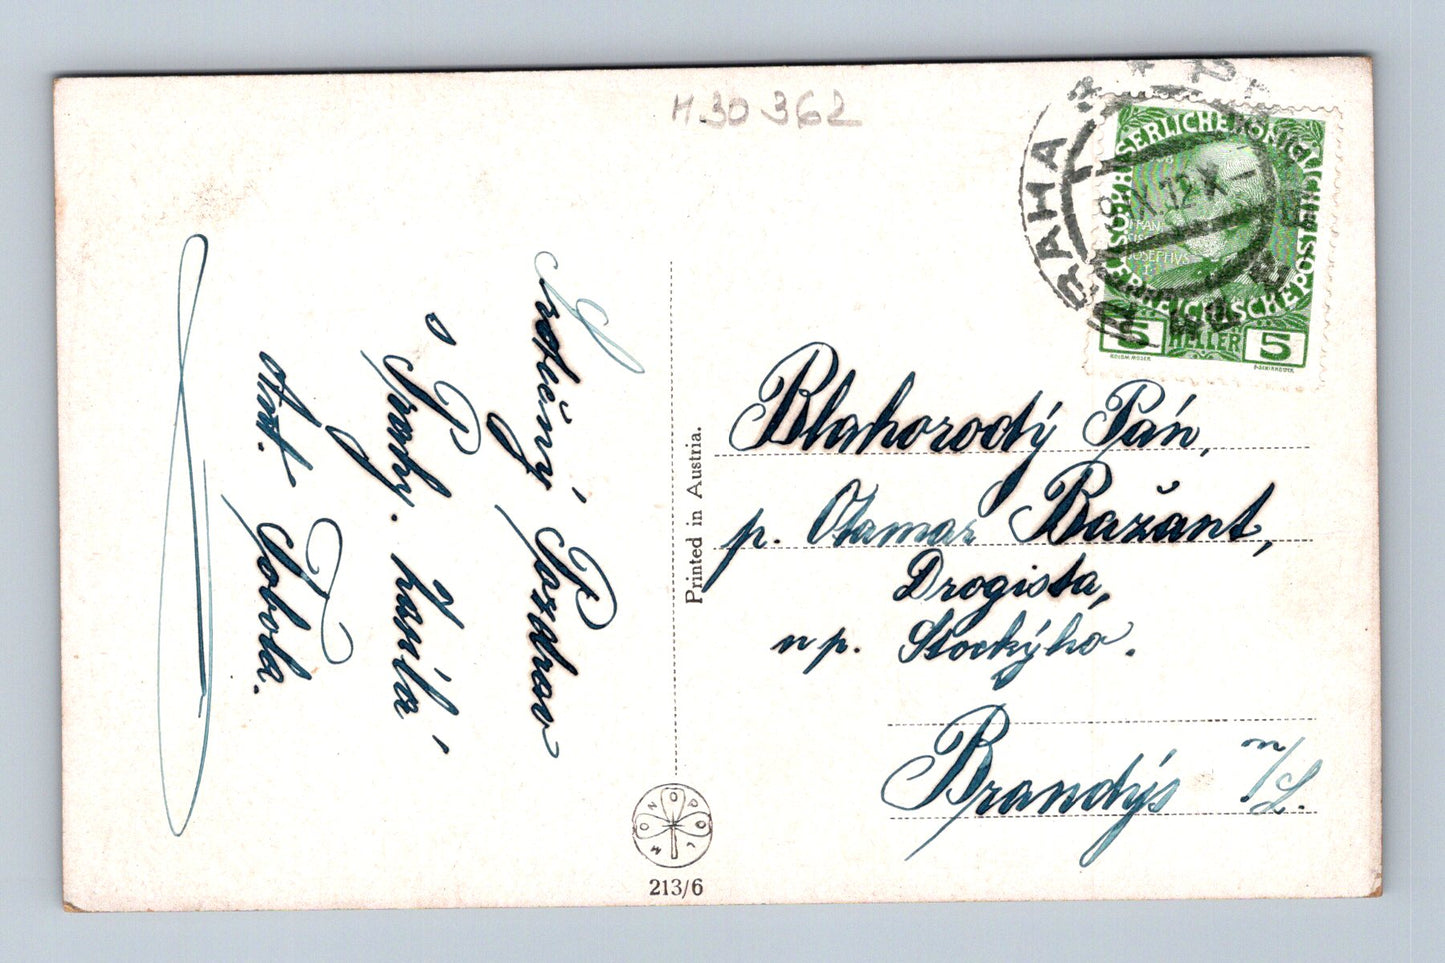 M30 362
Srdečný Pozdrav
s Prahy. zasílá
Ant. Tobola.
Printed in Austria.
MONOPOL
213/6
PRAHA
IX 12 X
KAISERLICHE KÖNIGLICHE
ÖSTERREICHISCHE POST
FRAN
CISC
JOSEPHVS
I
5 HELLER 5
KOLOM. MOSER
Blahorodý Pán,
p. Otamar Bažant,
Drogista,
np. Stockýho.
Brandýs n/L.